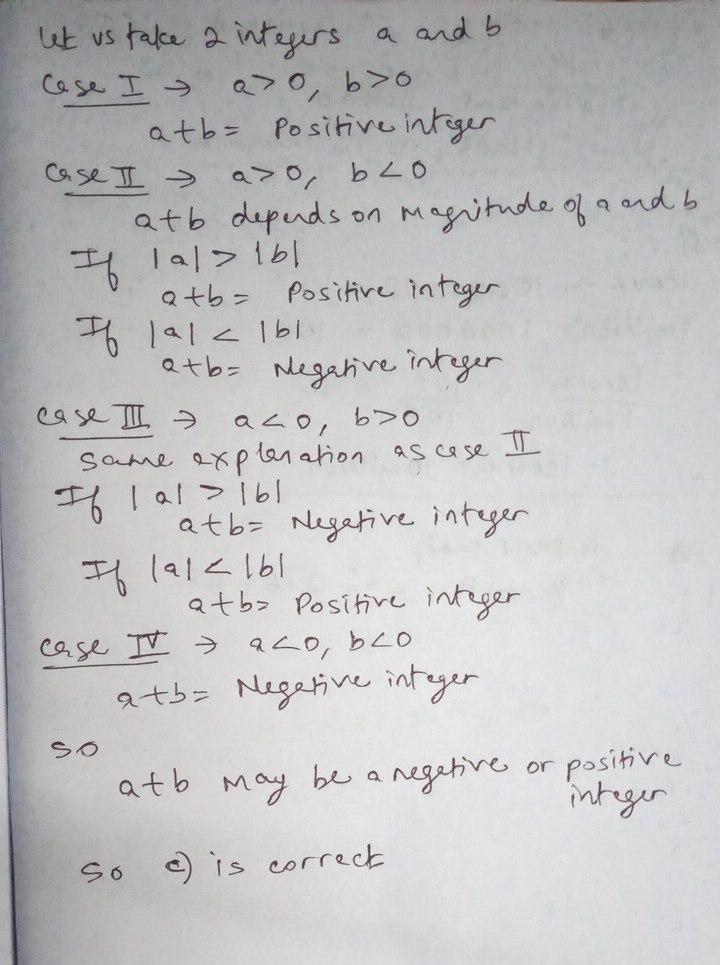 Let us take 2 integers a and b
Case I → a>0, b>0
a+b = Positive integer
Case II → a>0, b<0
a+b depends on Magnitude of a and b
If |a| > |b|
a+b = Positive integer
If |a| < |b|
a+b = Negative integer
case III → a<0, b>0
same explanation as case II
If |a| > |b|
a+b = Negative integer
If |a| < |b|
a+b = Positive integer
case IV → a<0, b<0
a+b = Negative integer
so
a+b may be a negative or positive
integer
so c) is correct